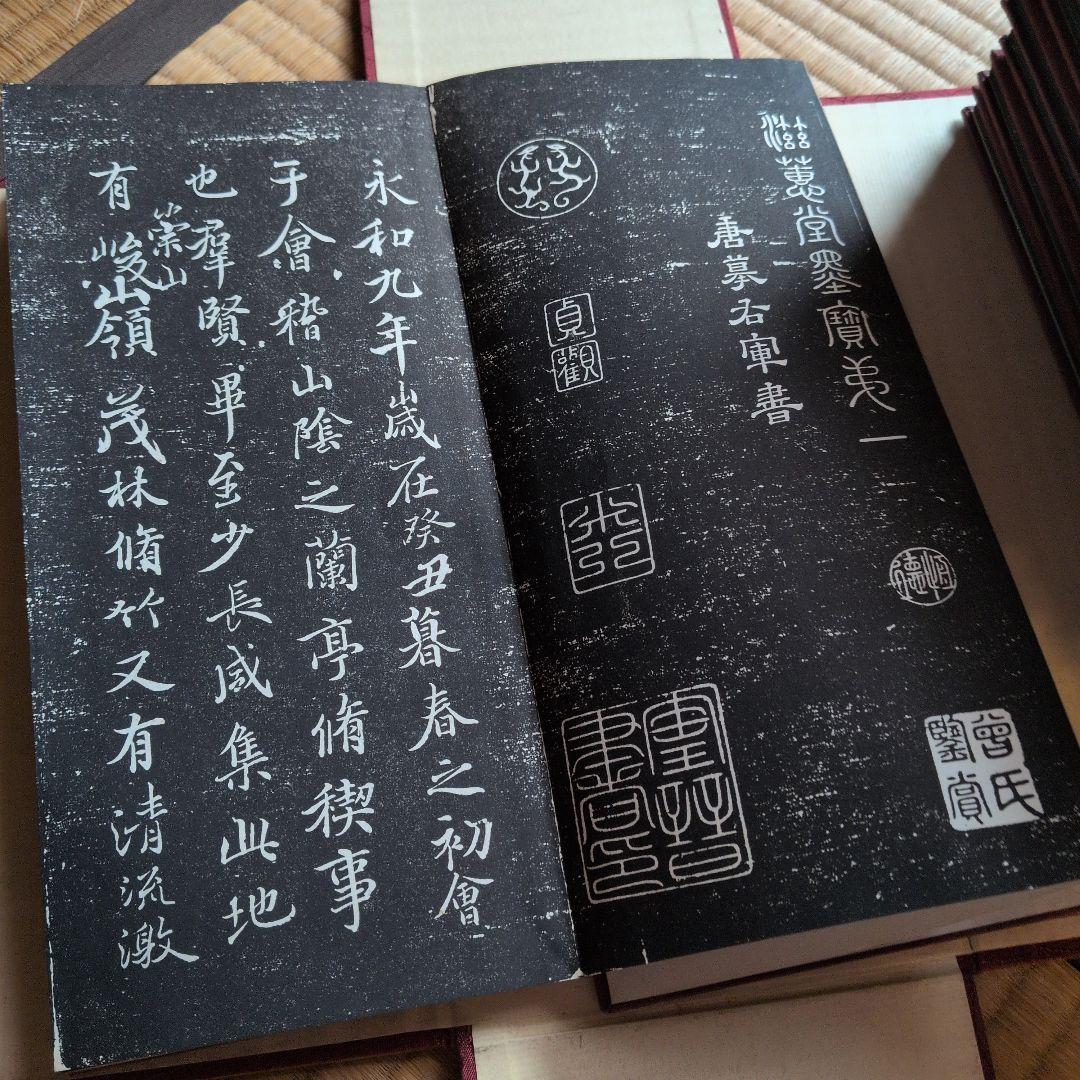 滋蕙堂墨寶弟一
唐摹右軍書
曾氏
鑒賞
貞觀
永和九年歲在癸丑暮春之初會
于會稽山陰之蘭亭脩稧事
也羣賢畢至少長咸集此地
有崇山峻領茂林脩竹又有清流激